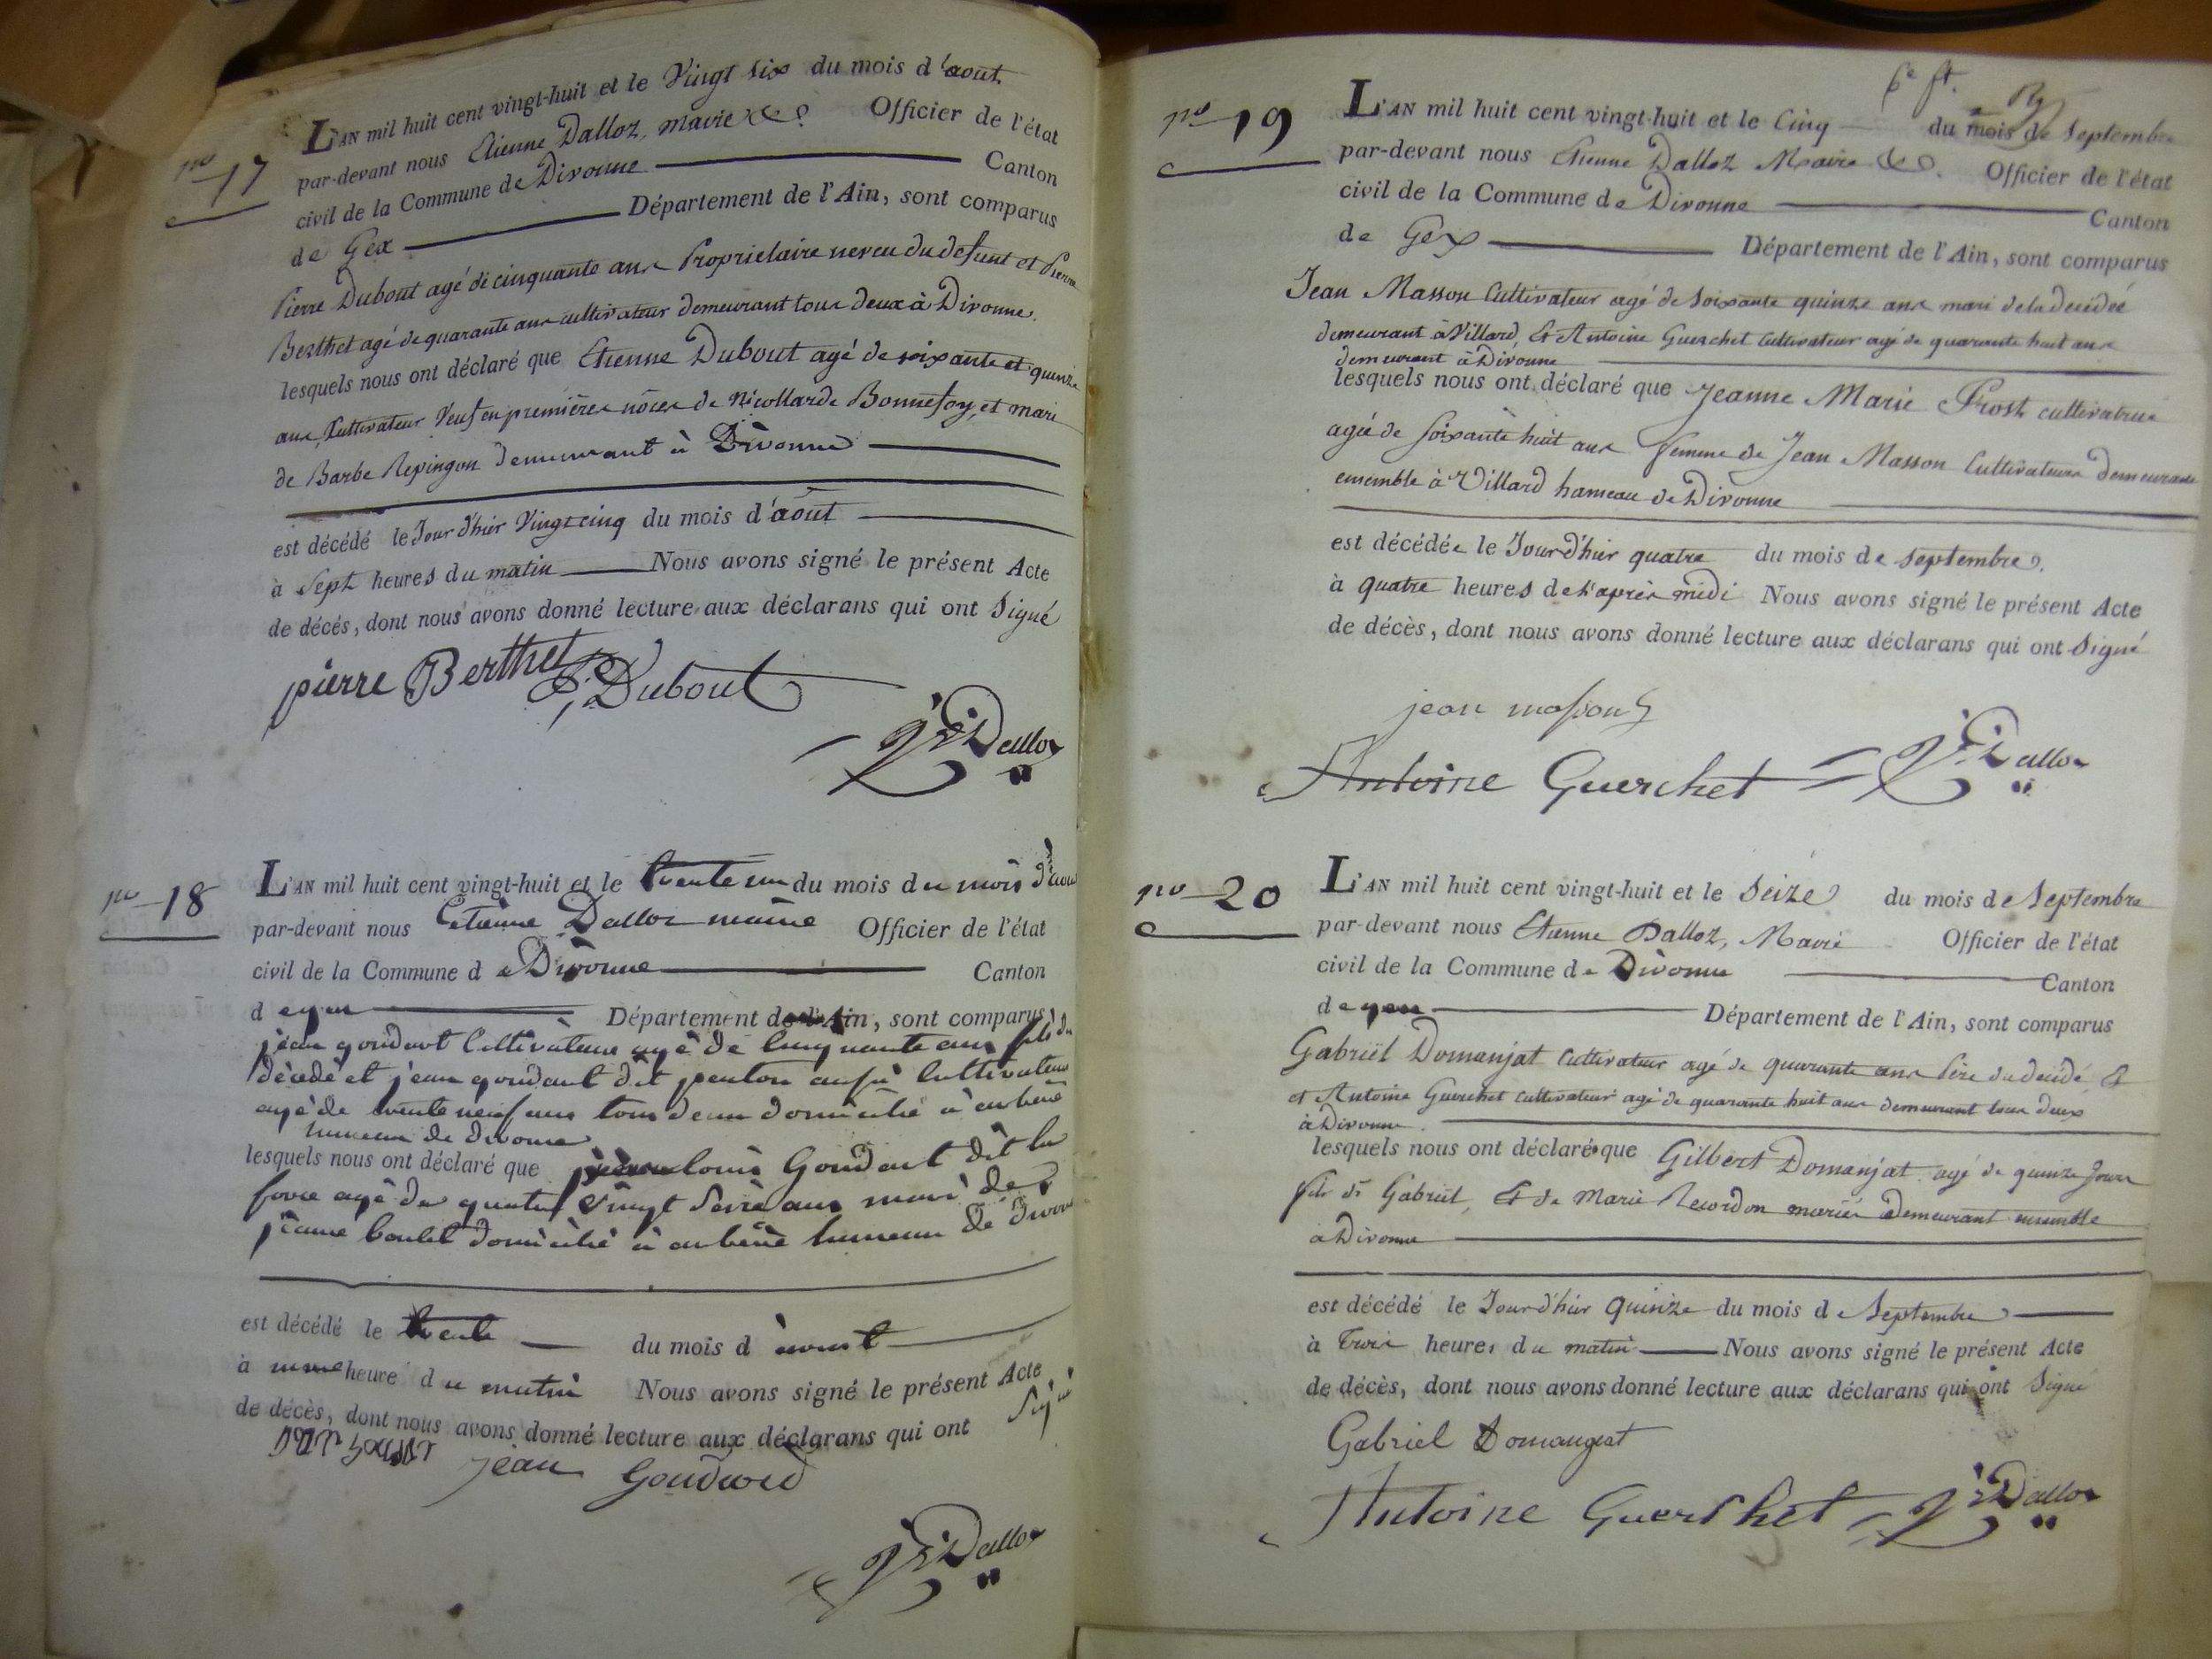 no 17
L'AN mil huit cent vingt-huit et le Vingt six du mois d'aout
par-devant nous Etienne Dalloz, maire &c. Officier de l'état
civil de la Commune de Divonne Canton
de Gex Département de l'Ain, sont comparus
Pierre Dubout agé de cinquante ans Proprietaire neveu du defunt et Pierre
Berthet agé de quarante ans cultivateur demeurant tous deux à Divonne.
lesquels nous ont déclaré que Etienne Dubout agé de soixante et quinze
ans, Cultivateur Veuf en premières nôces de Nicollarde Bonnefoy, et mari
de Barbe Repingon demeurant à Divonne
est décédé le Jour d'hier Vingt cinq du mois d'août
à Sept heures du matin Nous avons signé le présent Acte
de décés, dont nous avons donné lecture aux déclarans qui ont Signé
pierre Berthet P. Dubout
Dalloz
no 18
L'AN mil huit cent vingt-huit et le trente un du mois du mois d'aout
par-devant nous Etienne Dalloz maire Officier de l'état
civil de la Commune de Divonne Canton
de gex Département de l'Ain, sont comparus
jean goudart Cultivateur agé de Cinquante ans fils du
décédé et jean goudart dit aussi Cultivateur
agé de trente neuf ans tous deux domicilié à arbère
hameau de divonne
lesquels nous ont déclaré que louis Goudart dit la
agé de quatre Vingt ans mari de
jeanne domicilié à arbère hameau de divonne
est décédé le trente du mois d aoust
à une heure du matin Nous avons signé le présent Acte
de décès, dont nous avons donné lecture aux déclarans qui ont Signé
jean
Dalloz
no 19
L'AN mil huit cent vingt-huit et le Cinq du mois de Septembre
par-devant nous Etienne Dalloz Maire &c. Officier de l'état
civil de la Commune de Divonne Canton
de Gex Département de l'Ain, sont comparus
Jean Masson Cultivateur agé de Soixante quinze ans mari de la decédeé
demeurant à Villard, Et Antoine Guerchet Cultivateur agé de quarante huit ans
demeurant à Divonne
lesquels nous ont déclaré que Jeanne Marie Prost cultivatrice
agée de soixante huit ans femme de Jean Masson Cultivateurs demeurants
ensemble à Villard hameau de Divonne
est décédée le Jour d'hier quatre du mois de septembre
à quatre heures de l'après midi Nous avons signé le présent Acte
de décès, dont nous avons donné lecture aux déclarans qui ont Signé
jean masson
Antoine Guerchet Dalloz
no 20
L'AN mil huit cent vingt-huit et le Seize du mois de Septembre
par-devant nous Etienne Dalloz, Maire Officier de l'état
civil de la Commune de Divonne Canton
de gex Département de l'Ain, sont comparus
Gabriël Domanjat Cultivateur agé de quarante ans Père du decédé Et
et Antoine Guerchet Cultivateur agé de quarante huit ans demeurant tous deux
à Divonne.
lesquels nous ont déclaré que Gilbert Domanjat agé de quinze Jours
fils de Gabriël, Et de Marie Recordon mariés demeurant ensemble
à Divonne
est décédé le Jour d'hier quinze du mois de Septembre
à trois heures du matin Nous avons signé le présent Acte
de décès, dont nous avons donné lecture aux déclarans qui ont Signé
Gabriel Domangat
Antoine Guerchet Dalloz